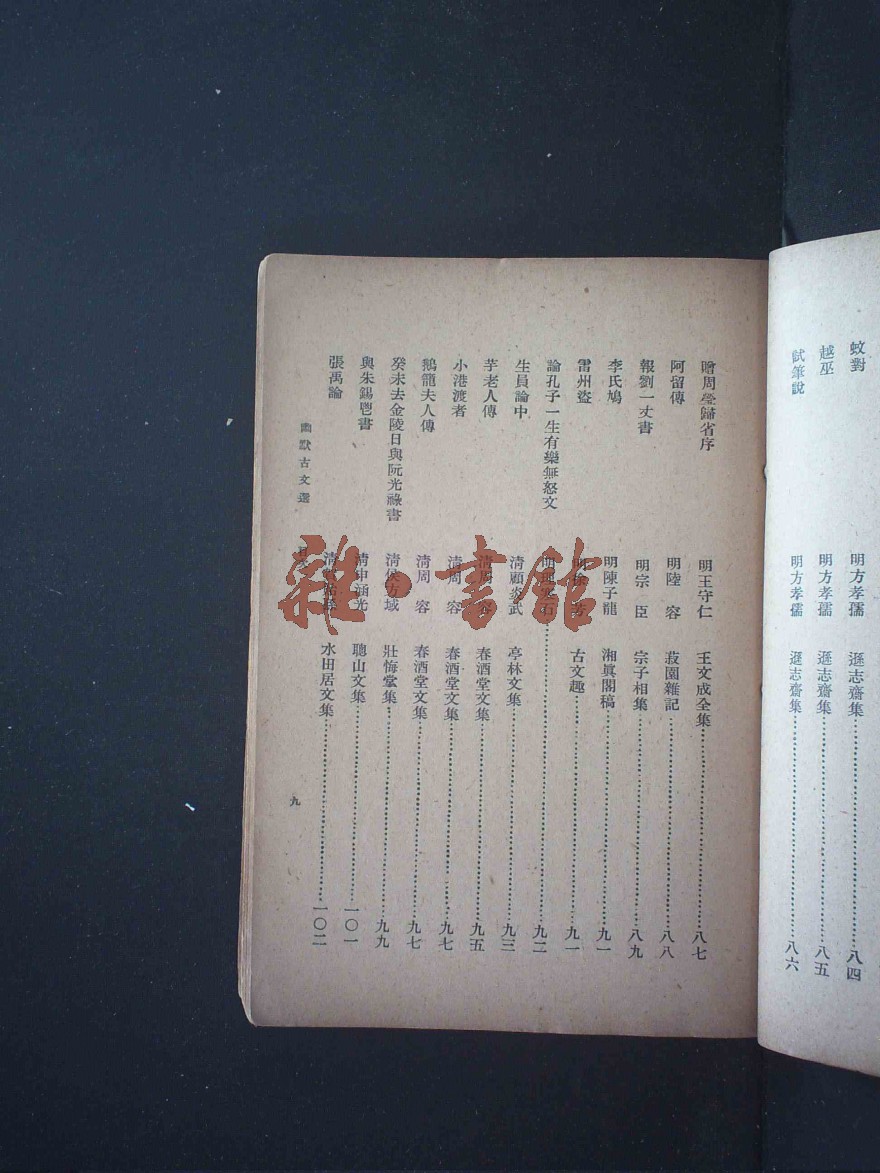 蚊對 明方孝孺 遜志齋集 八四
越巫 明方孝孺 遜志齋集 八五
試筆說 明方孝孺 遜志齋集 八六
贈周瑩歸省序 明王守仁 王文成全集 八七
阿留傳 明陸 容 菽園雜記 八八
報劉一丈書 明宗 臣 宗子相集 八九
李氏鳩 明陳子龍 湘眞閣稿 九一
雷州盜 明徐 芳 古文趣 九一
論孔子一生有樂無怒文 九二
生員論中 清顧炎武 亭林文集 九三
芋老人傳 清周 容 春酒堂文集 九五
小港渡者 清周 容 春酒堂文集 九七
鵝籠夫人傳 清周 容 春酒堂文集 九七
癸未去金陵日與阮光祿書 清侯方域 壯悔堂集 九九
與朱錫鬯書 清申涵光 聰山文集 一〇一
張禹論 水田居文集 一〇二
幽默古文選 目次 九
雜·書館